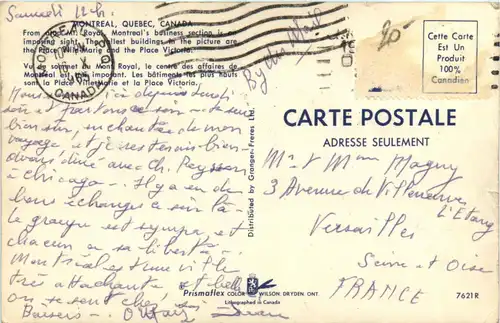 Samedi 12h
MONTREAL, QUEBEC, CANADA
From Mount Royal, Montreal's business section is an
imposing sight. The tallest buildings in the picture are
the Place Ville Marie and the Place Victoria.
Vu du sommet du Mont Royal, le centre des affaires de
Montréal est très imposant. Les bâtiments les plus hauts
sont la Place Ville-Marie et la Place Victoria.
CANADA
By Air Mail
80-
Cette Carte
Est Un
Produit
100%
Canadien
CARTE POSTALE
ADRESSE SEULEMENT
Mr et Mme Magny
3 Avenue de Villeneuve
l'Etang
Versailles
Seine et Oise
FRANCE
7621R
Distributed by Granger-Freres Ltd.
lundi
soir et partons ce soir
bien sur, enchantée de mon
voyage, et je rentrerais bien
dîné avec Ch. Peyssen
Chicago. Il y a eu de
bons échanges ce sur là-
le groupe est sympa, et
chacun a sa liberté.
Montréal est une ville
très attachante et belle
on se sent chez soi
Baisers
Prismaflex COLOR WILSON, DRYDEN, ONT.
Lithographed in Canada